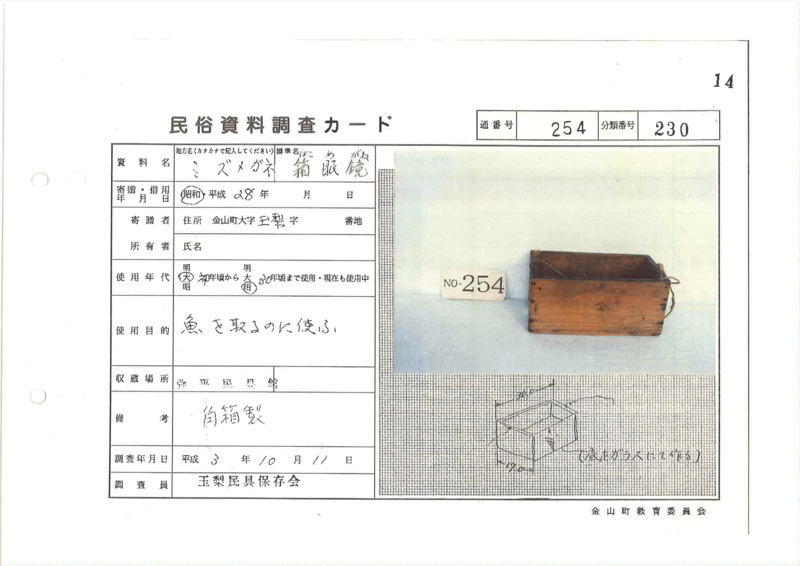 14
民俗資料調査カード
通番号 254 分類番号 230
資料名 地方名(カタカナで記入してください) ミズメガネ 標準名 箱眼鏡 はこめがね
寄贈・借用年月日 昭和・平成 28年 月 日
寄贈者 住所 金山町大字 玉梨 字 番地
所有者 氏名
使用年代 明大昭 初年頃から 明大昭 30年頃まで使用・現在も使用中
使用目的 魚を取るのに使ふ
収蔵場所 弥平民具館
備考 角箱製
調査年月日 平成 3年 10月 11日
調査員 玉梨民具保存会
NO-254
30.0
17.0
(底をガラスにて作る)
金山町教育委員会